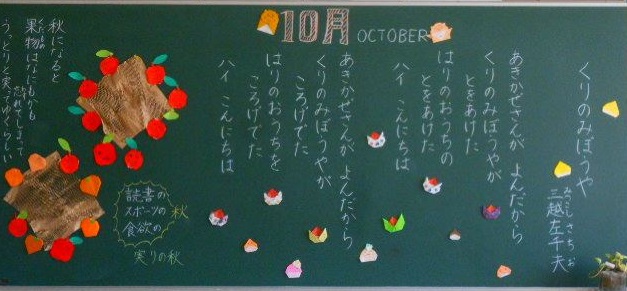 10月 OCTOBER
くりのみぼうや
三越左千夫
あきかぜさんが よんだから
くりのみぼうやが
とをあけた
はりのおうちの
とをあけた
ハイ こんにちは
あきかぜさんが よんだから
くりのみぼうやが
ころげでた
はりのおうちを
ころげでた
ハイ こんにちは
読書の
スポーツの
食欲の
秋
実りの秋
秋になると
果物はなにもかも
忘れてしまって
うっとりと実ってゆくらしい